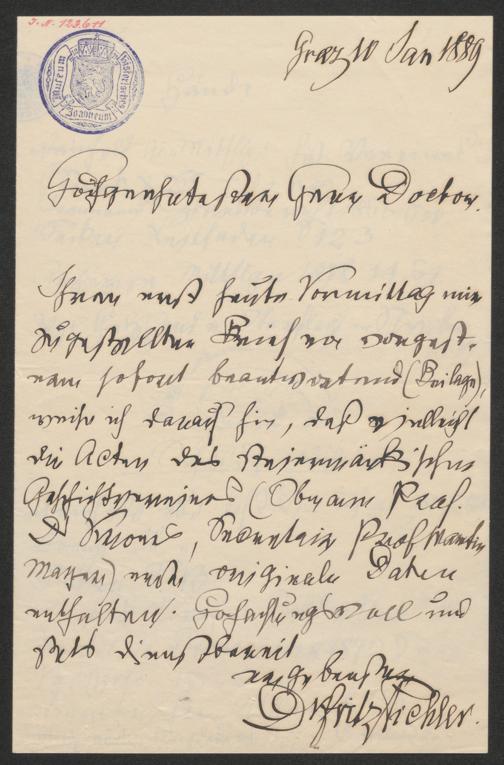 J.N. 123.611
Museum Historisches Joanneum
Graz 10 Jan 1889
Hochgeehrtester Herr Doctor.
Ihren erst heute Vormittag mir
zugestellten Brief von vorgest-
ern sofort beantwortend (Beilage),
weise ich darauf hin, daß vielleicht
die Acten des steiermärkischen
Geschichtsvereines (Obmann Prof.
Dr Krones, Secretair Prof Martin
Mayer) noch originale Daten
enthalten. Hochachtungsvoll und
stets dienstbereit
ergebenster
Dr Fritz Pichler.